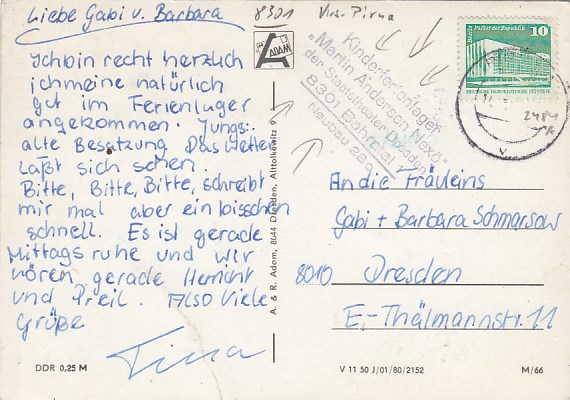 Liebe Gabi u. Barbara
Ich bin recht herzlich
ich meine natürlich
gut im Ferienlager
angekommen. Jungs:
alte Besatzung Das Wetter
läßt sich sehen.
Bitte, Bitte, Bitte, schreibt
mir mal aber ein bisschen
schnell. Es ist gerade
Mittagsruhe und wir
hören gerade Herricht
und Preil. Also Viele
Grüße
Tina
DDR 0,25 M
8301
Krs. Pirna
ADAM
A. & R. Adam, 8044 Dresden, Alttolkewitz 9
Kinderferienlager
"Martin Andersen Nexö"
der Staatstheater Dresden
8301 Bahratal
Neubau 28a
Berlin, Palast der Republik
10
DEUTSCHE DEMOKRATISCHE REPUBLIK
An die Fräuleins
Gabi + Barbara Schmarsow
8010 Dresden
E.-Thälmannstr. 11
V 11 50 J/01/80/2152
M/66